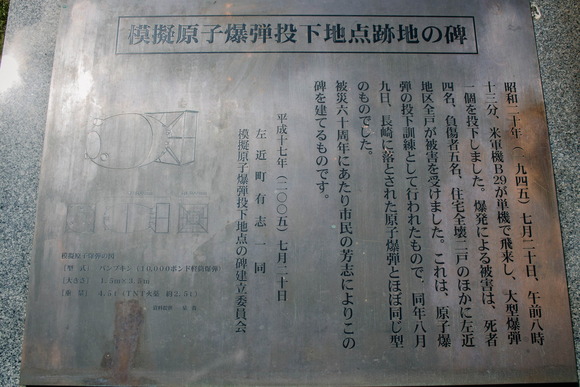 模擬原子爆弾投下地点跡地の碑
昭和二十年(一九四五)七月二十日、午前八時
十三分、米軍機B29が単機で飛来し、大型爆弾
一個を投下しました。爆発による被害は、死者
四名、負傷者五名、住宅全壊二戸のほかに左近
地区全戸が被害を受けました。これは、原子爆
弾の投下訓練として行われたもので、同年八月
九日、長崎に落とされた原子爆弾とほぼ同じ型
のものでした。
被災六十周年にあたり市民の芳志によりこの
碑を建てるものです。
平成十七年(二〇〇五)七月二十日
左近町有志一同
模擬原子爆弾投下地点の碑建立委員会
模擬原子爆弾の図
[型 式] パンプキン(10,000ポンド軽筒爆弾)
[大きさ] 1.5m×3.5m
[重 量] 4.5t(TNT火薬 約2.5t)